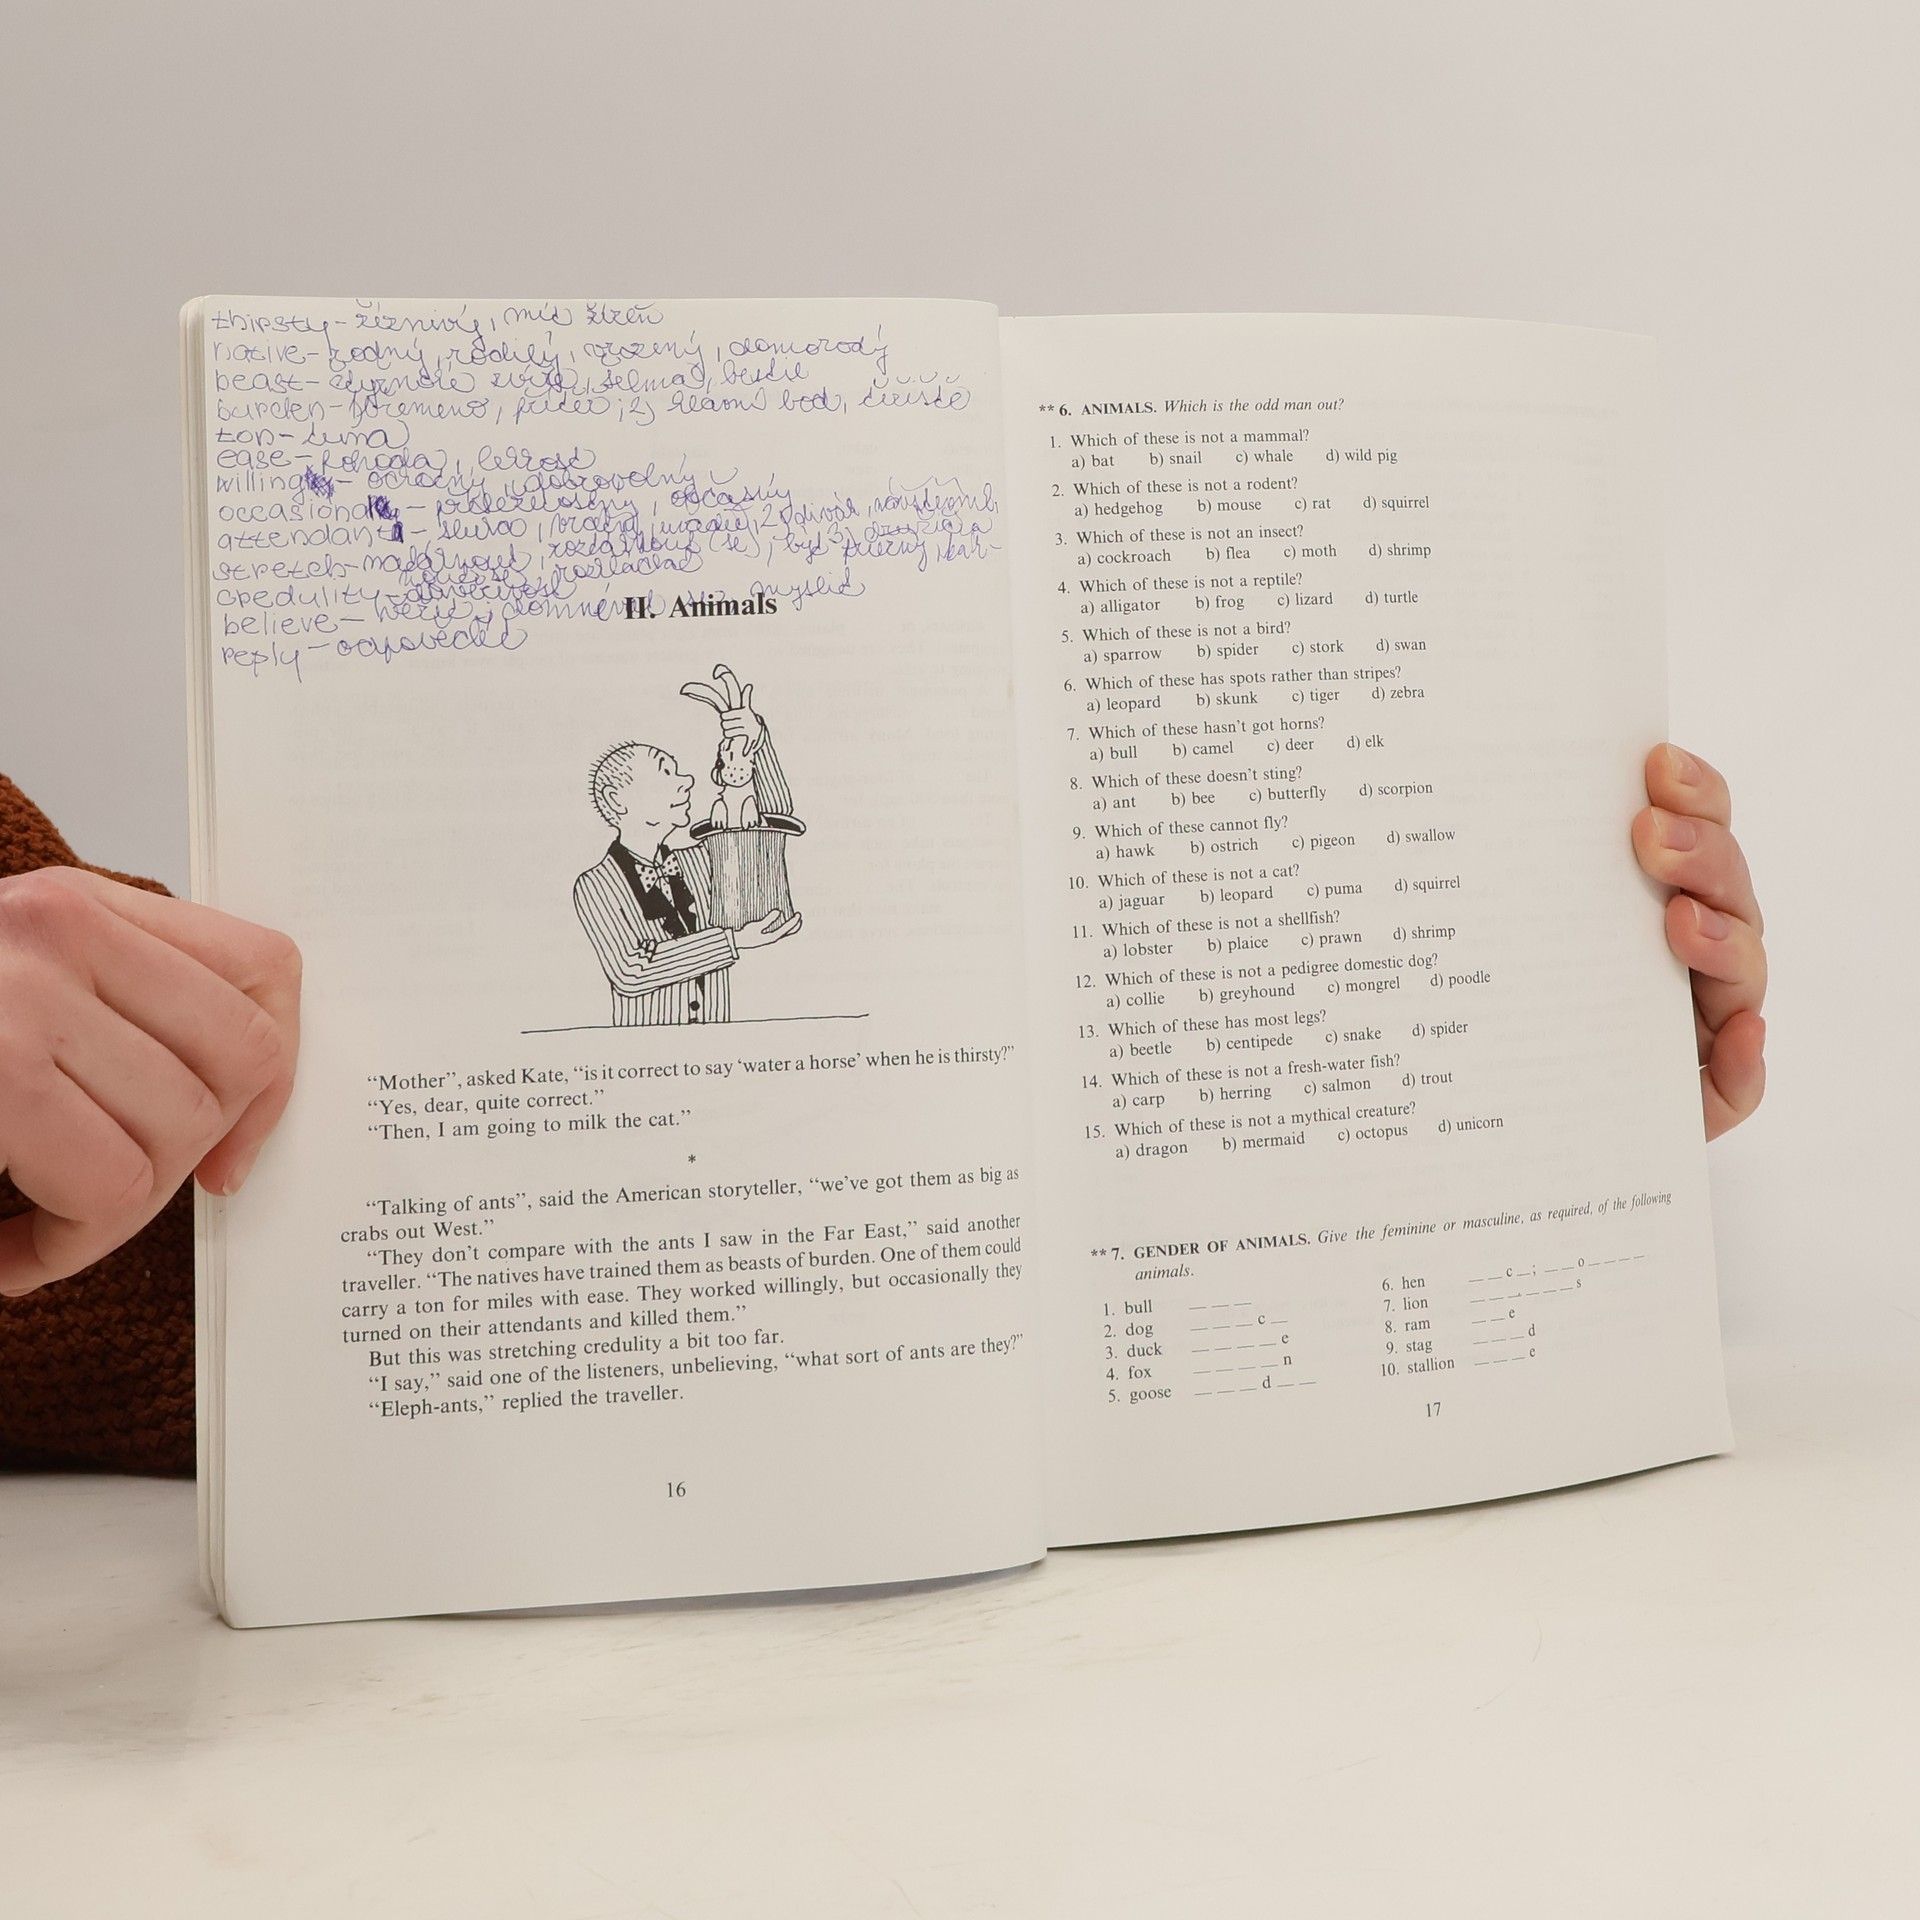 thirsty - žíznivý, mít žízeň
native - rodný, rodilý, vrozený, domorodý
beast - zvíře, šelma, bestie
burden - břemeno, ; 2) hlavní bod,
ton - tuna
ease - pohoda, lehkost
willing - ochotný, dobrovolný
occasional - příležitostný, občasný
attendant - sluha,
stretch - roztáhnout (se), být
credulity - důvěřivost
believe - věřit, domnívat se, myslit
reply - odpovědět
II. Animals
“Mother”, asked Kate, “is it correct to say ‘water a horse’ when he is thirsty?”
“Yes, dear, quite correct.”
“Then, I am going to milk the cat.”
*
“Talking of ants”, said the American storyteller, “we’ve got them as big as
crabs out West.”
“They don’t compare with the ants I saw in the Far East,” said another
traveller. “The natives have trained them as beasts of burden. One of them could
carry a ton for miles with ease. They worked willingly, but occasionally they
turned on their attendants and killed them.”
But this was stretching credulity a bit too far.
“I say,” said one of the listeners, unbelieving, “what sort of ants are they?”
“Eleph-ants,” replied the traveller.
16
** 6. ANIMALS. Which is the odd man out?
1. Which of these is not a mammal?
a) bat b) snail c) whale d) wild pig
2. Which of these is not a rodent?
a) hedgehog b) mouse c) rat d) squirrel
3. Which of these is not an insect?
a) cockroach b) flea c) moth d) shrimp
4. Which of these is not a reptile?
a) alligator b) frog c) lizard d) turtle
5. Which of these is not a bird?
a) sparrow b) spider c) stork d) swan
6. Which of these has spots rather than stripes?
a) leopard b) skunk c) tiger d) zebra
7. Which of these hasn’t got horns?
a) bull b) camel c) deer d) elk
8. Which of these doesn’t sting?
a) ant b) bee c) butterfly d) scorpion
9. Which of these cannot fly?
a) hawk b) ostrich c) pigeon d) swallow
10. Which of these is not a cat?
a) jaguar b) leopard c) puma d) squirrel
11. Which of these is not a shellfish?
a) lobster b) plaice c) prawn d) shrimp
12. Which of these is not a pedigree domestic dog?
a) collie b) greyhound c) mongrel d) poodle
13. Which of these has most legs?
a) beetle b) centipede c) snake d) spider
14. Which of these is not a fresh-water fish?
a) carp b) herring c) salmon d) trout
15. Which of these is not a mythical creature?
a) dragon b) mermaid c) octopus d) unicorn
** 7. GENDER OF ANIMALS. Give the feminine or masculine, as required, of the following
animals.
1. bull _ _ _
2. dog _ _ _ c _
3. duck _ _ _ _ e
4. fox _ _ _ _ n
5. goose _ _ _ d _ _
6. hen _ _ c _ ; _ _ o _ _ _ _
7. lion _ _ _ _ _ _ s
8. ram _ _ e
9. stag _ _ _ d
10. stallion _ _ _ e
17